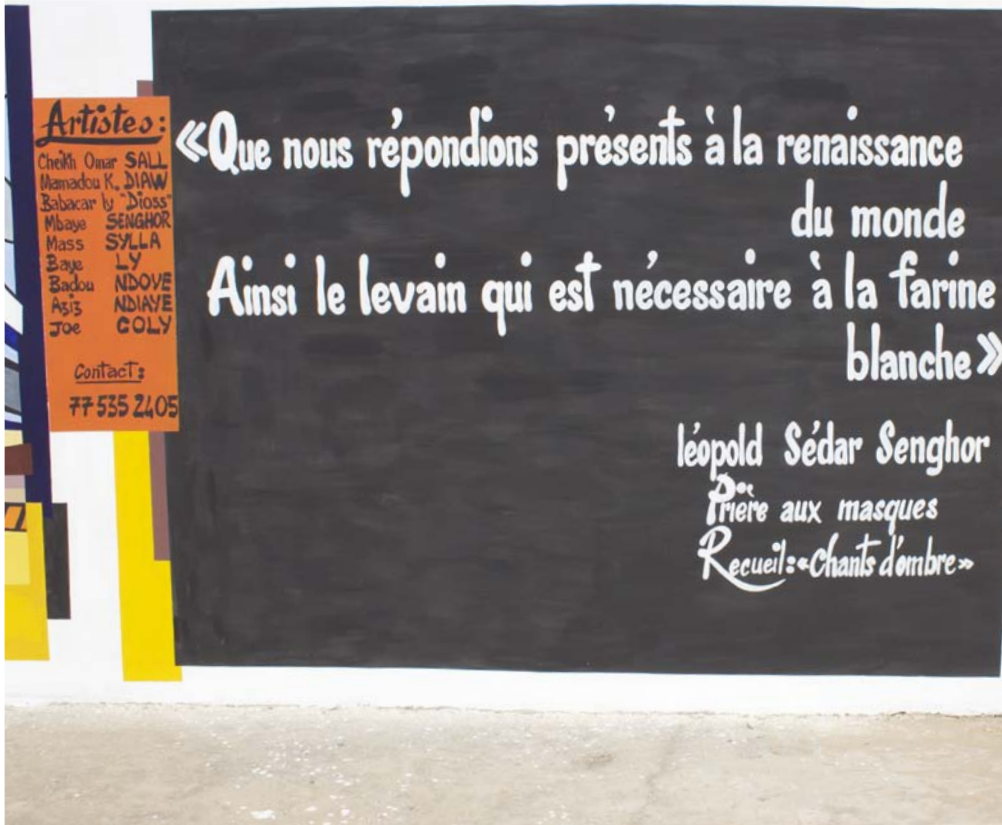 Artistes:
Cheikh Omar SALL
Mamadou K. DIAW
Babacar ly "Dioss"
Mbaye SENGHOR
Mass SYLLA
Baye LY
Badou NDOYE
Aziz NDIAYE
Joe COLY
Contact:
77 535 2405
«Que nous répondions présents à la renaissance
du monde
Ainsi le levain qui est nécessaire à la farine
blanche»
léopold Sédar Senghor
Prière aux masques
Recueil: «Chants d'ombre»